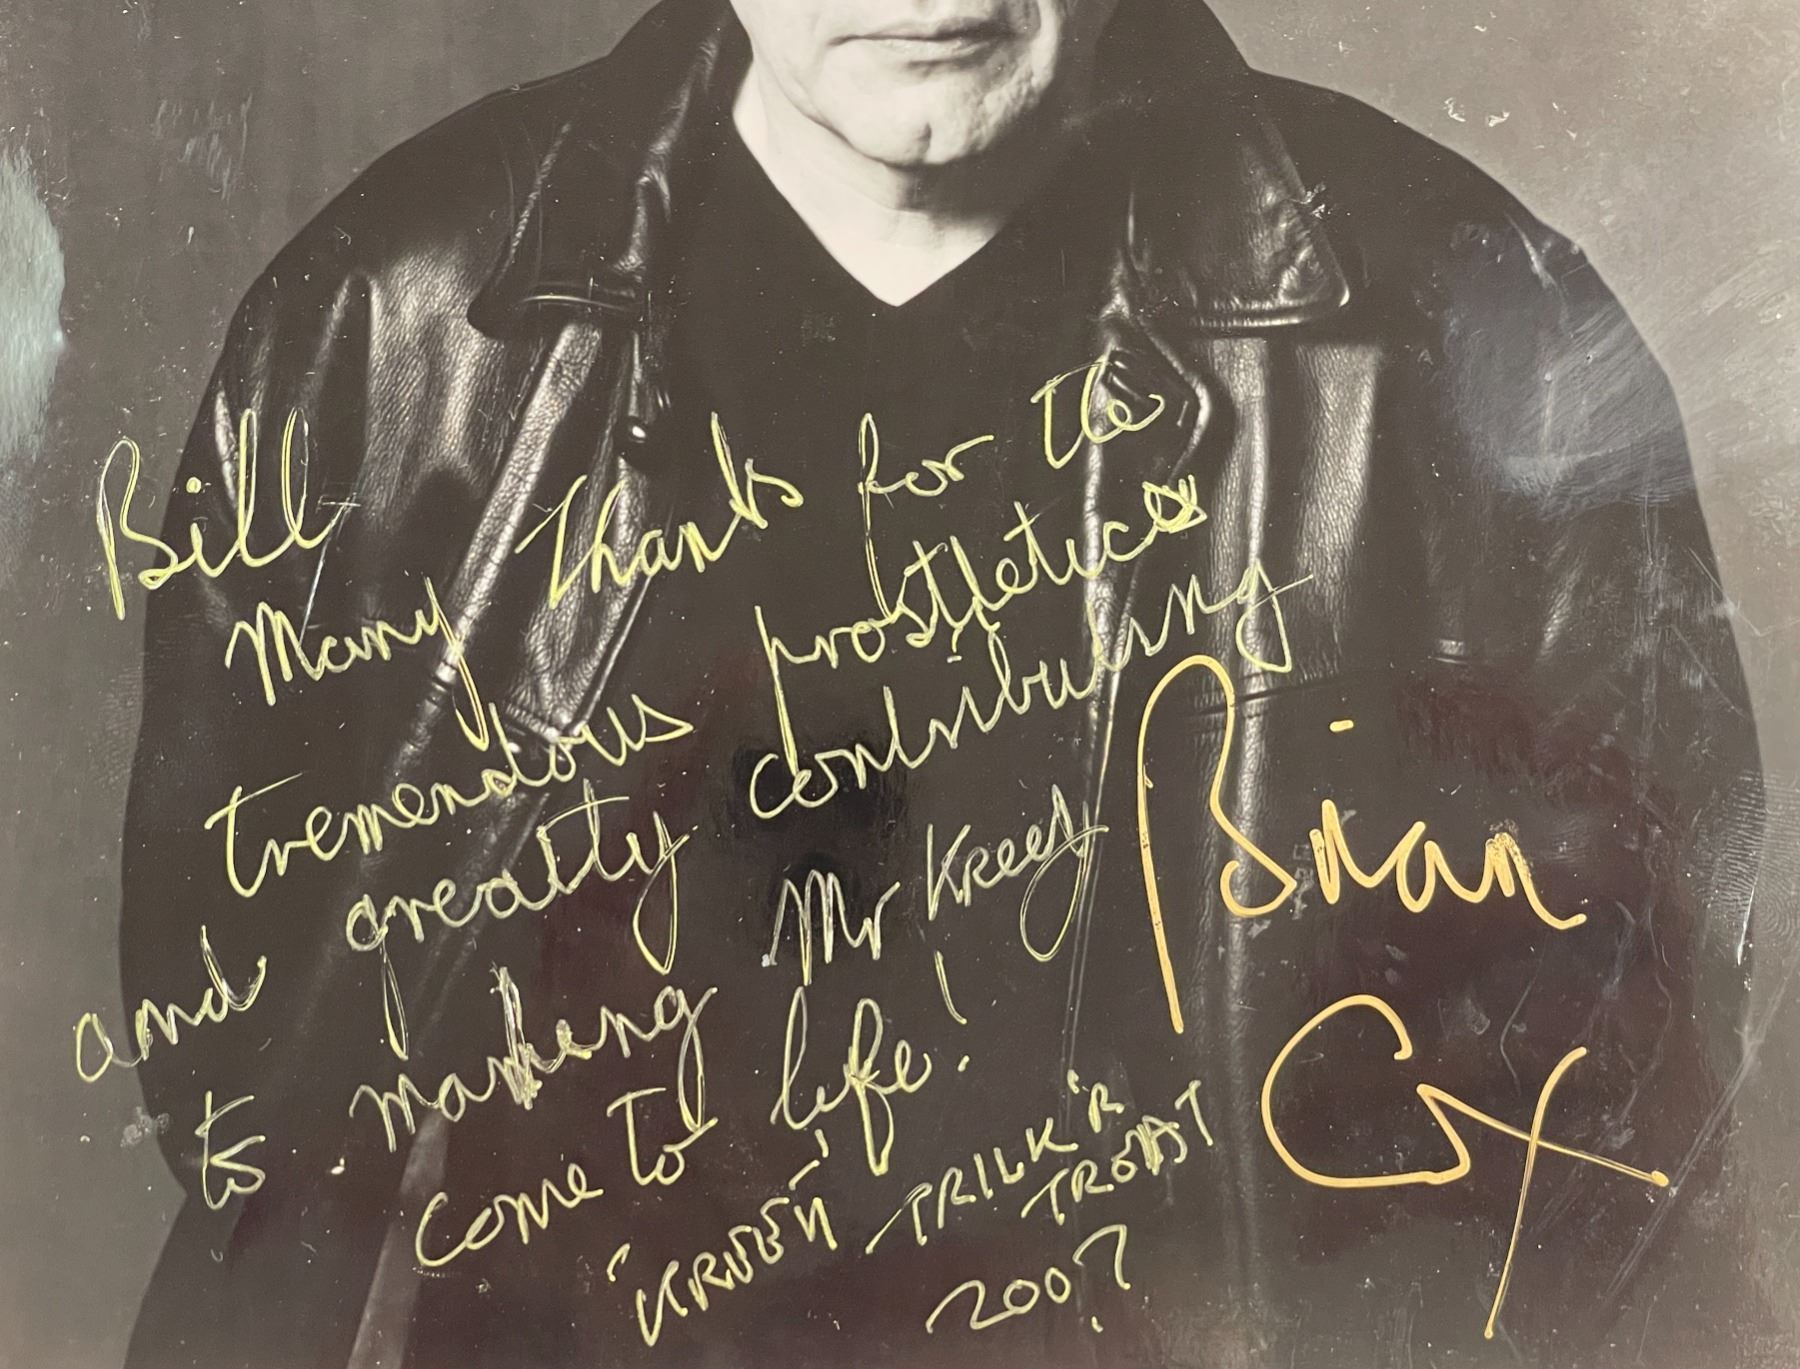 Bill
Many thanks for the
tremendous prosthetics
and greatly contributing
to making Mr Kreeg
come to life!
"KREEG" TRICK 'R
TREAT
2007
Brian
Cox